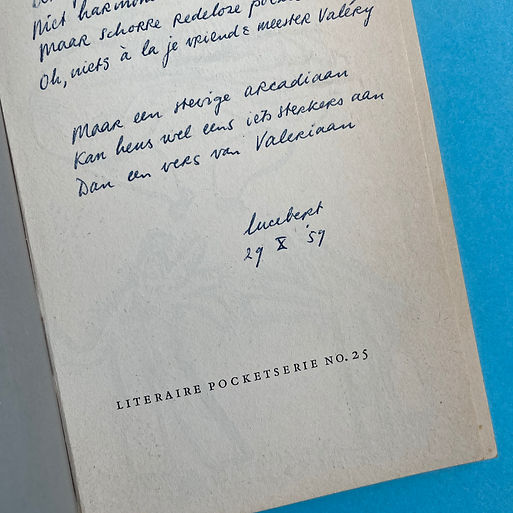 Niet harmon
Maar schorre redeloze po
Oh, niets à la je vriend & meester Valéry
Maar een stevige arcadiaan
Kan heus wel eens iets sterkers aan
Dan een vers van Valeriaan
lucebert
29 X '59
LITERAIRE POCKETSERIE NO. 25